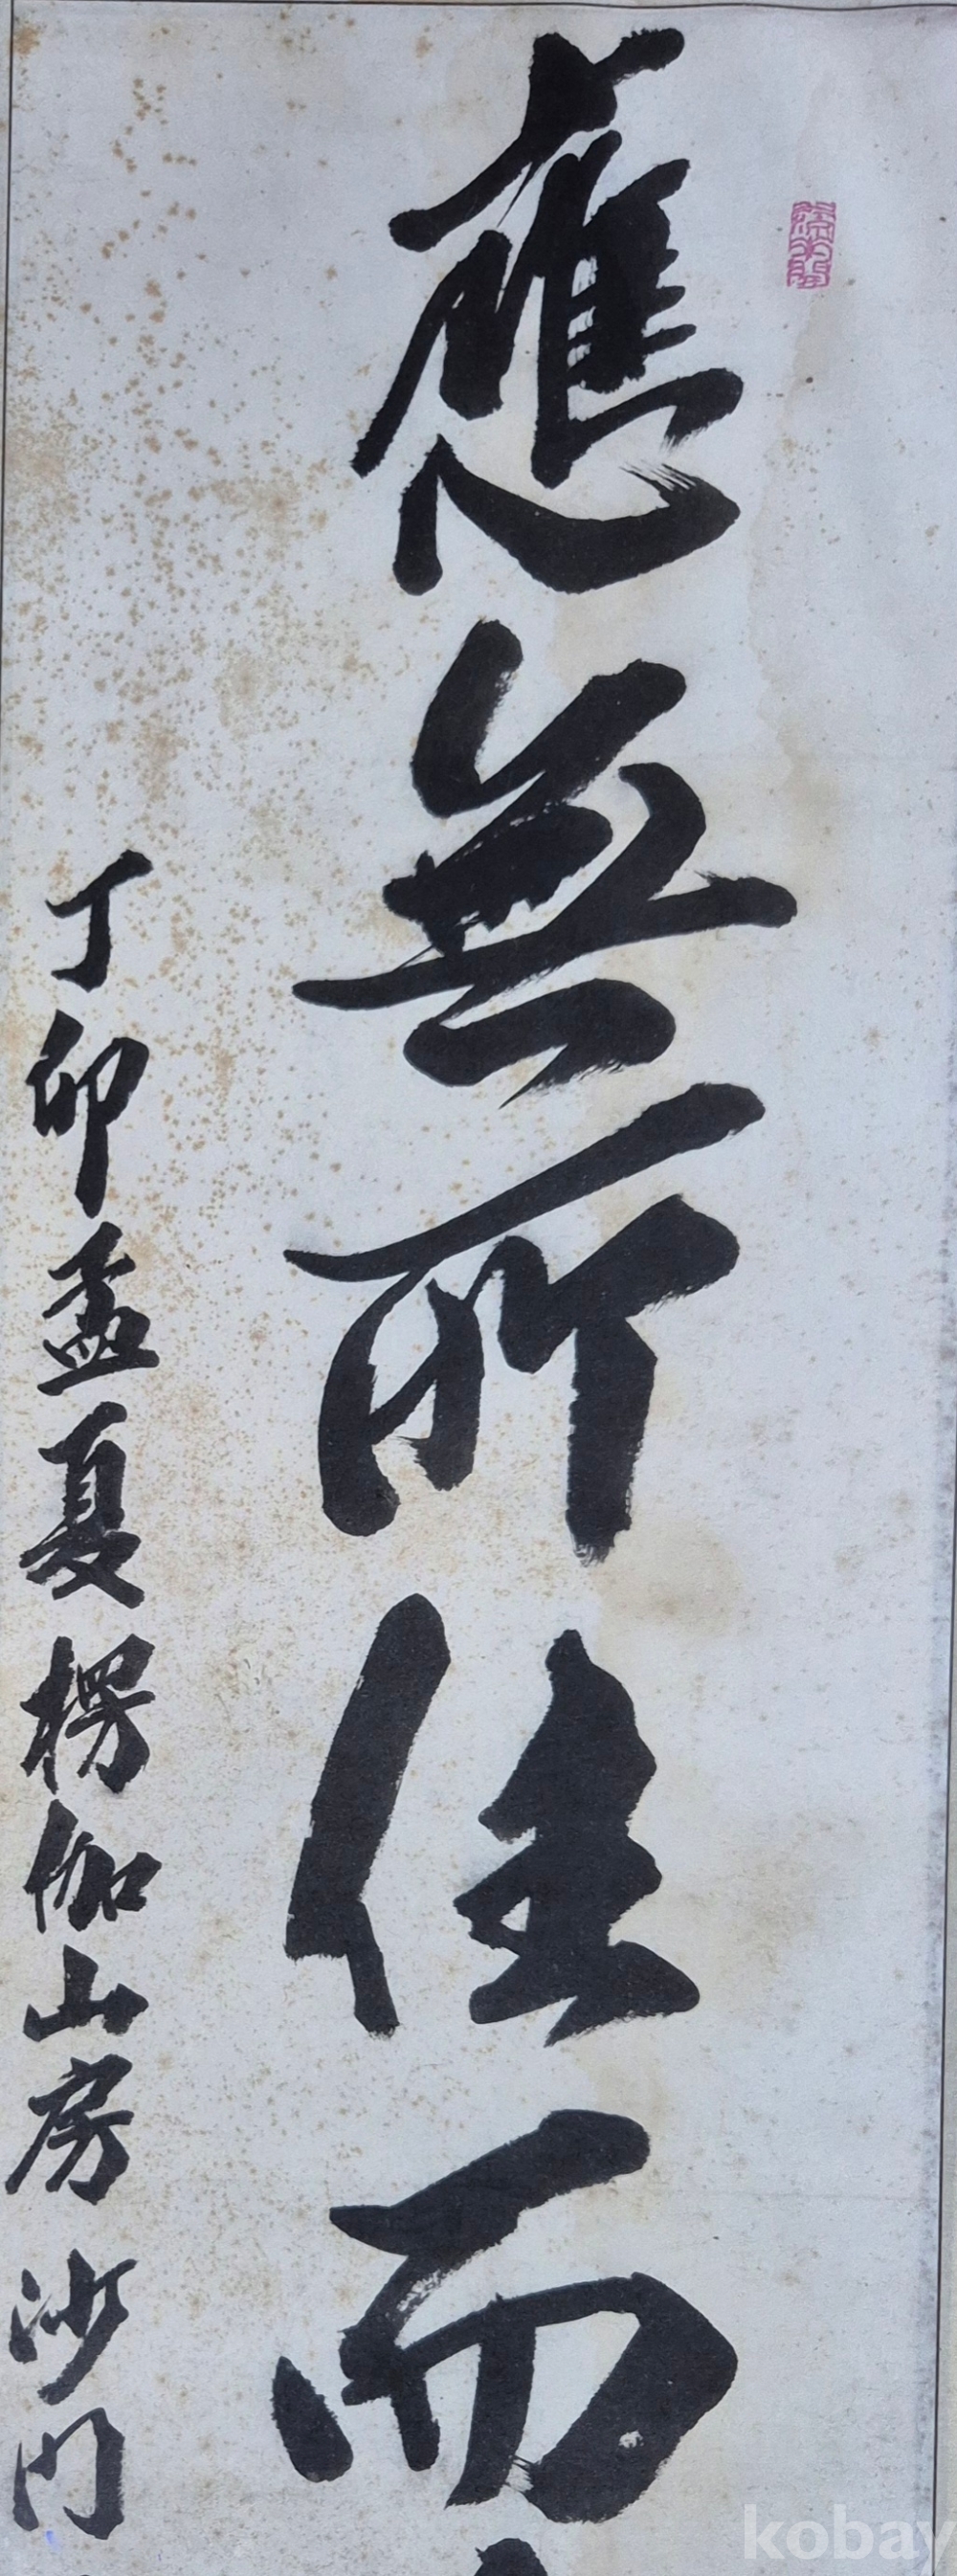 應無所住而
丁卯孟夏楞伽山房沙門
kobay